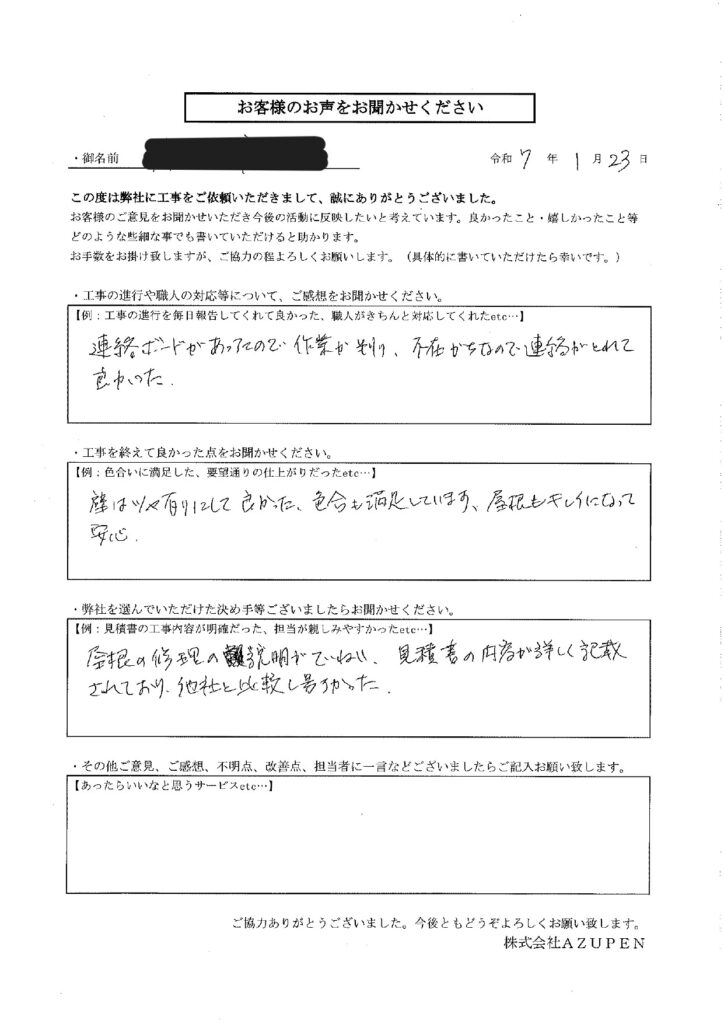 お客様のお声をお聞かせください
・御名前
令和 7 年 1 月 23 日
この度は弊社に工事をご依頼いただきまして、誠にありがとうございました。
お客様のご意見をお聞かせいただき今後の活動に反映したいと考えています。良かったこと・嬉しかったこと等
どのような些細な事でも書いていただけると助かります。
お手数をお掛け致しますが、ご協力の程よろしくお願いします。（具体的に書いていただけたら幸いです。）
・工事の進行や職人の対応等について、ご感想をお聞かせください。
【例：工事の進行を毎日報告してくれて良かった、職人がきちんと対応してくれたetc…】
連絡ボードがあったので作業が判り、不在がちなので連絡がとれて
良かった.
・工事を終えて良かった点をお聞かせください。
【例：色合いに満足した、要望通りの仕上がりだったetc…】
壁はツヤ有りにして良かった、色合も満足しています、屋根もキレイになって
安心.
・弊社を選んでいただけた決め手等ございましたらお聞かせください。
【例：見積書の工事内容が明確だった、担当が親しみやすかったetc…】
屋根の修理の説明がていねい、見積書の内容が詳しく記載
されており、他社と比較し易かった.
・その他ご意見、ご感想、不明点、改善点、担当者に一言などございましたらご記入お願い致します。
【あったらいいなと思うサービスetc…】
ご協力ありがとうございました。今後ともどうぞよろしくお願い致します。
株式会社ＡＺＵＰＥＮ